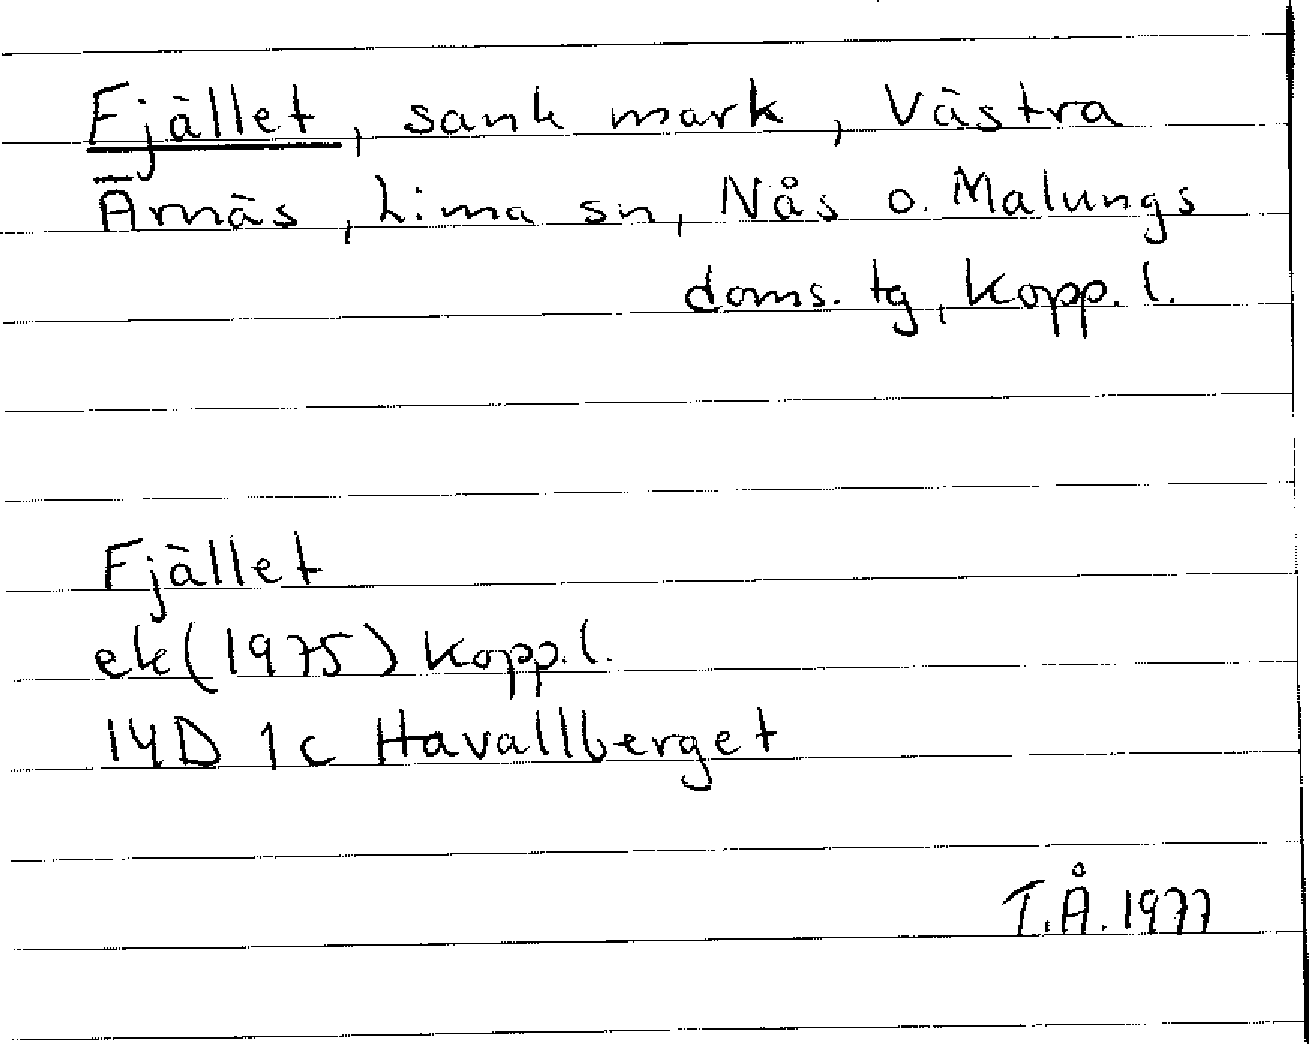 Fjället, sank mark, Västra
Ärnäs, Lima sn, Nås o. Malungs
doms. tg, Kopp. l.
Fjället
ek (1975) Kopp. l.
14D 1c Havallberget
T.Å. 1977